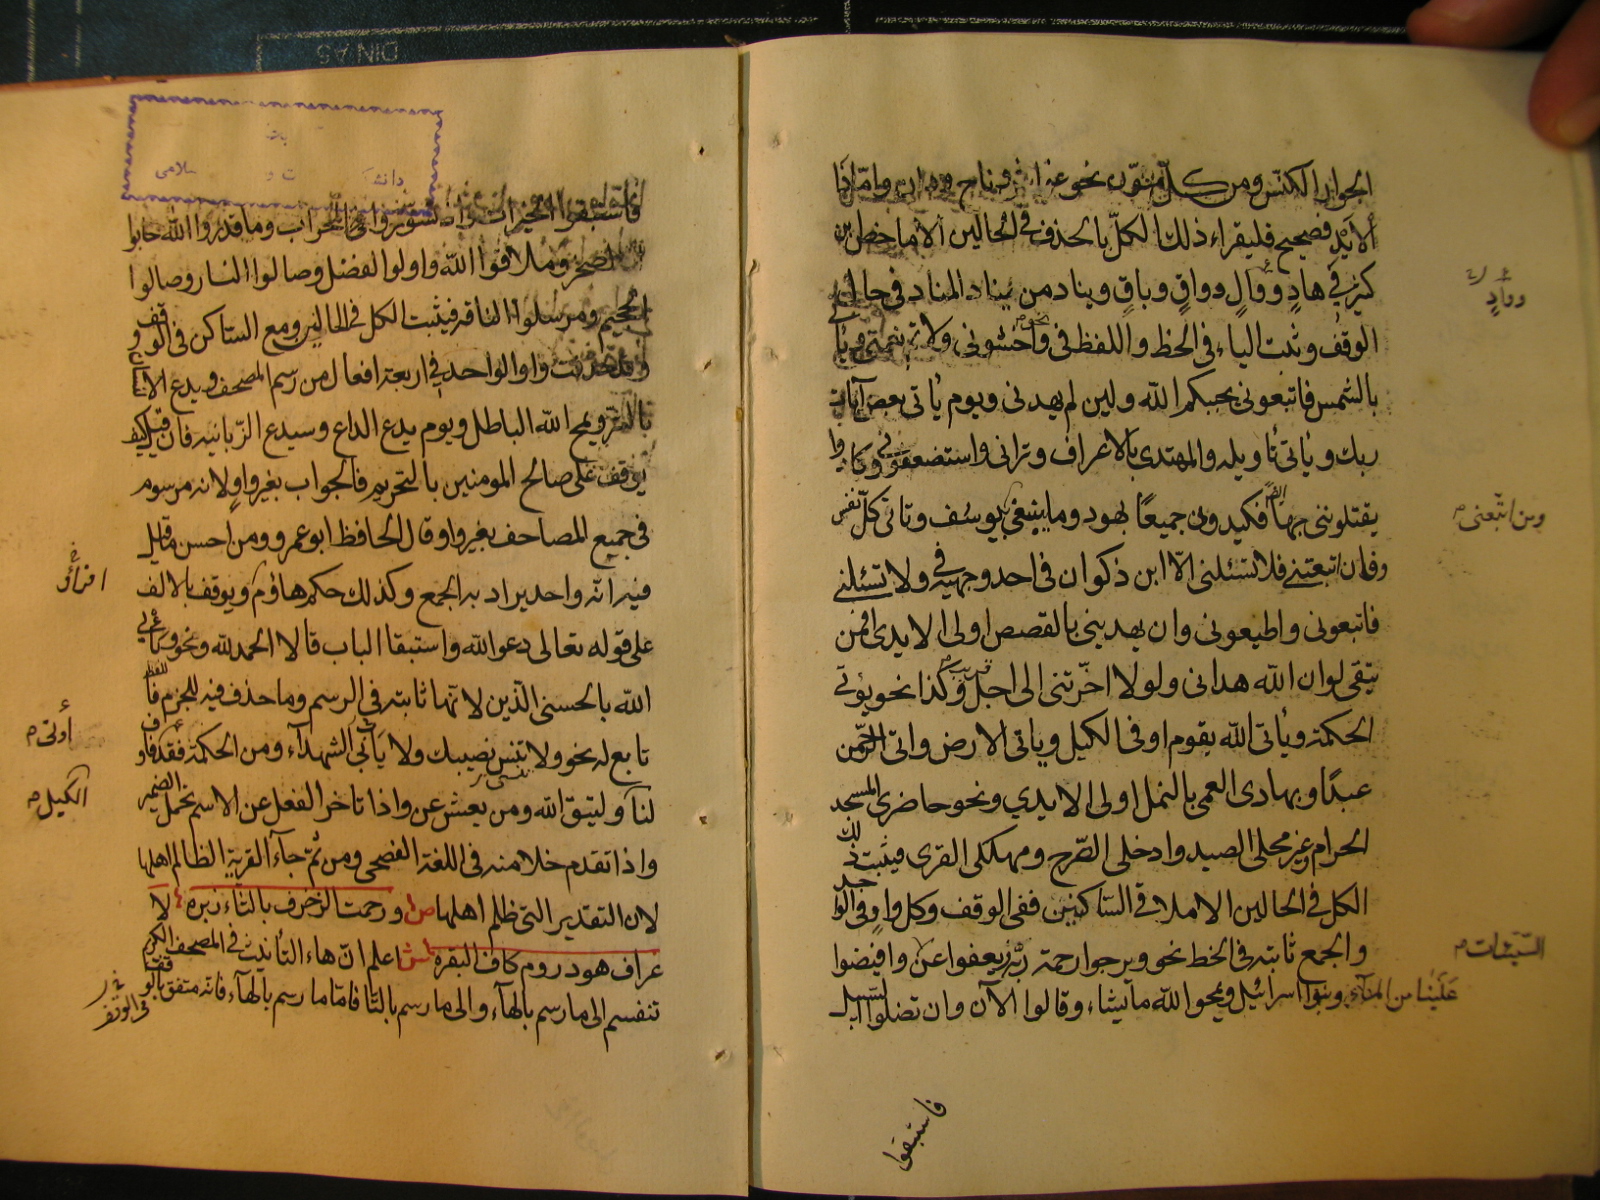 الجوار الكنس ومن كل منون نحو غواش وناج وهار واما ذا
الايد فصحيح فليقراء ذلك الكل بالحذف في الحالين الا ما خص ابن
كثير في هادٍ ووالٍ وواقٍ وباقٍ ويناد من يناد المناد في حال
الوقف وثبت الياء في الخط واللفظ في واخشوني ولاتم نعمتي ويأتي
بالشمس فاتبعوني يحببكم الله ولين لم يهدني ويوم يأتي بعض آيات
ربك ويأتي تأويله والمهتدي بالاعراف وتراني واستضعفوني وكادوا
يقتلونني فكيدوني جميعًا بهود وما ينبغي بيوسف وتاتي كل نفس
وفان اتبعتني فلا تسئلني الا ابن ذكوان في احد وجهيه في ولا تسئلني
فاتبعوني واطيعوني وان يهديني بالقصص اولي الايدي افمن
يتقي لو ان الله هداني ولولا اخرتني الى اجل قريب وكذا نحو يؤتي
الحكمة ويأتي الله بقوم اوفي الكيل وياتي الارض واتي الرحمن
عبدًا وبهادي العمي بالنمل اولي الايدي ونحو حاضري المسجد
الحرام وغير محلي الصيد وادخلي الصرح ومهلكي القرى فيثبت ذلك
الكل في الحالين الا ملاقي الساكنين ففي الوقف وكل واو في الواحد
والجمع ثابته في الخط نحو ويرجوا رحمة ربه ويعفوا عن وافيضوا
وبنوا اسرائيل ويمحوا الله ما يشاء وقالوا الآن وان تضلوا السبيل
ومن اتبعني م
السيئات م
علينا من الماء
فاستبقوا
فاستبقوا الخيرات واذ تسوروا المحراب وما قدروا الله جابوا
الصخر وملاقوا الله واولوا الفضل وصالوا النار وصالوا
الجحيم ومرسلوا الناقة فيثبت الكل في الحالين ومع الساكن في الوقف و
وقد حذفت واو الواحد في اربعة افعال من رسم المصحف ويدع الانسان
بالشر ويمح الله الباطل ويوم يدع الداع وسيدع الزبانيه فان قيل كيف
يوقف على صالح المومنين بالتحريم فالجواب بغير واو لانه مرسوم
في جميع المصاحف بغير واو قال الحافظ ابو عمرو ومن احسن ما قيل
فيه انه واحد يراد به الجمع وكذلك حكم هاؤم ويوقف بالالف
على قوله تعالى دعوا الله واستبقا الباب قالا الحمد لله ونحو
الله بالحسنى الذين لانها ثابته في الرسم وما حذف فيه للجزم فاللفظ
تابع له نحو ولا تنس نصيبك ولا يأب الشهداء ومن الحكمة فقد فاوف
لنا وليتق الله ومن يعش عن واذا تاخر الفعل عن الاسم تحمل الضمير
واذا تقدم خلا منه في اللغة الفصحى ومن ثم جاء القرية الظالم اهلها
لان التقدير التي ظلم اهلها ص ورحمت الزخرف بالتاء زبره لا
عراف هود روم كاف البقره ش اعلم ان هاء التأنيث في المصحف الكريم
تنقسم الى ما رسم بالهاء والى ما رسم بالتا فاما ما رسم بالهاء فانه متفق بالوقف
اقرأو
أوتي م
الكيل م